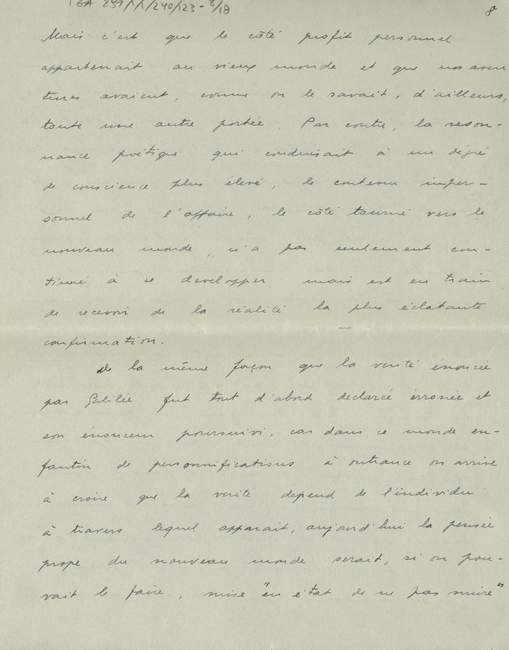 TGA 899/1/1/240/123-8/18
8
Mais c'est que le côté profit personnel
appartenait au vieux monde et que nos aven
tures avaient, comme on le savait, d'ailleurs,
toute une autre portée. Par contre, la réson-
nance poétique qui conduisait à un dégré
de conscience plus élevé, le contenu imper-
sonnel de l'affaire, le côté tourné vers le
nouveau monde, n'a pas seulement con-
tinué à se developper mais est en train
de recevoir de la réalité la plus éclatante
confirmation.
De la même façon que la vérité enoncée
par Galilée fut tout d'abord declarée érronée et
son énonceur poursuivi, car dans ce monde en-
fantin de personnifications à outrance on arrive
à croire que la vérité depend de l'individu
à travers lequel apparait, aujourd'hui la pensée
propre du nouveau monde serait, si on pou-
vait le faire, mise "en état de ne pas nuire"